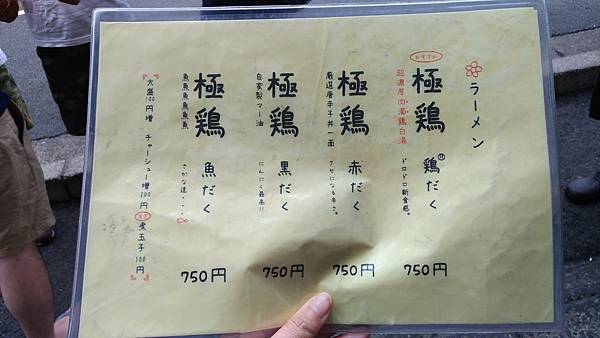 ラーメン
おすすめ
極鶏 鶏だく
超濃厚肉濁鶏白湯
ドロドロ新食感。
750円
極鶏 赤だく
厳選唐辛子丼一面
クセになる辛さ。
750円
極鶏 黒だく
自家製マー油
にんにく最高!!
750円
極鶏 魚だく
魚魚魚魚魚魚
さかな達・・・∞
750円
大盛100円増 チャーシュー増200円 煮玉子100円